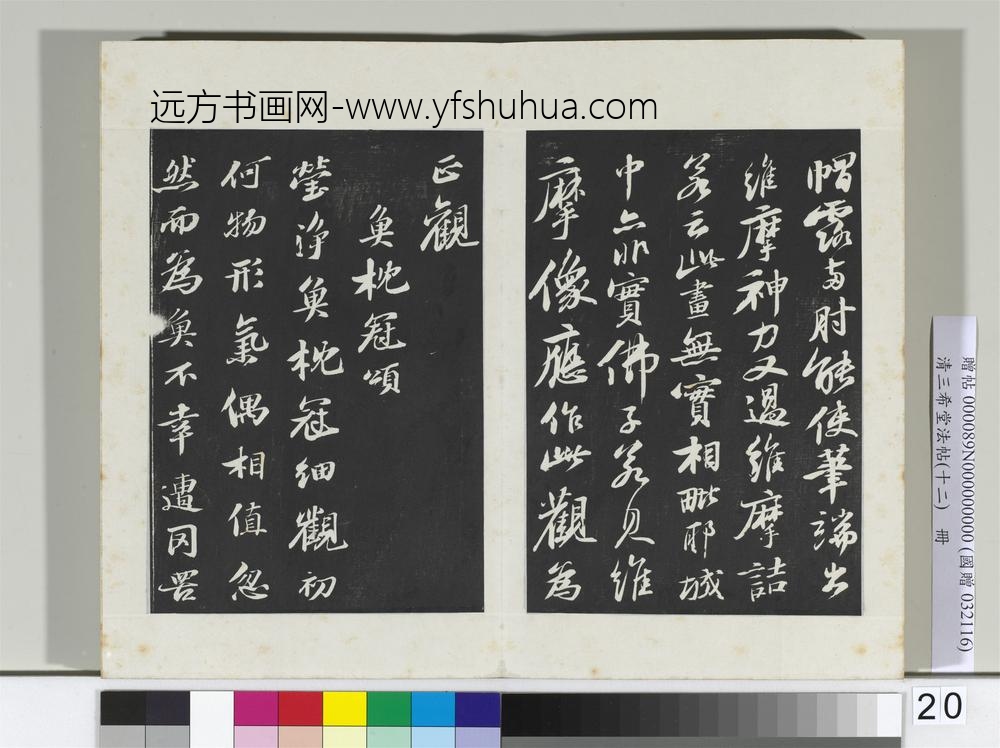 远方书画网-www.yfshuhua.com
帽露兩肘能使筆端出
維摩神力又過維摩詰
若云此畫無實相毗耶城
中亦非實佛子若見維
摩像應作此觀為
正觀
魚枕冠頌
瑩淨魚枕冠細觀初
何物形氣偶相值忽
然而為魚不幸遭罔罟
贈帖 000089N000000000 (國贈 032116)
清三希堂法帖(十二) 冊
20